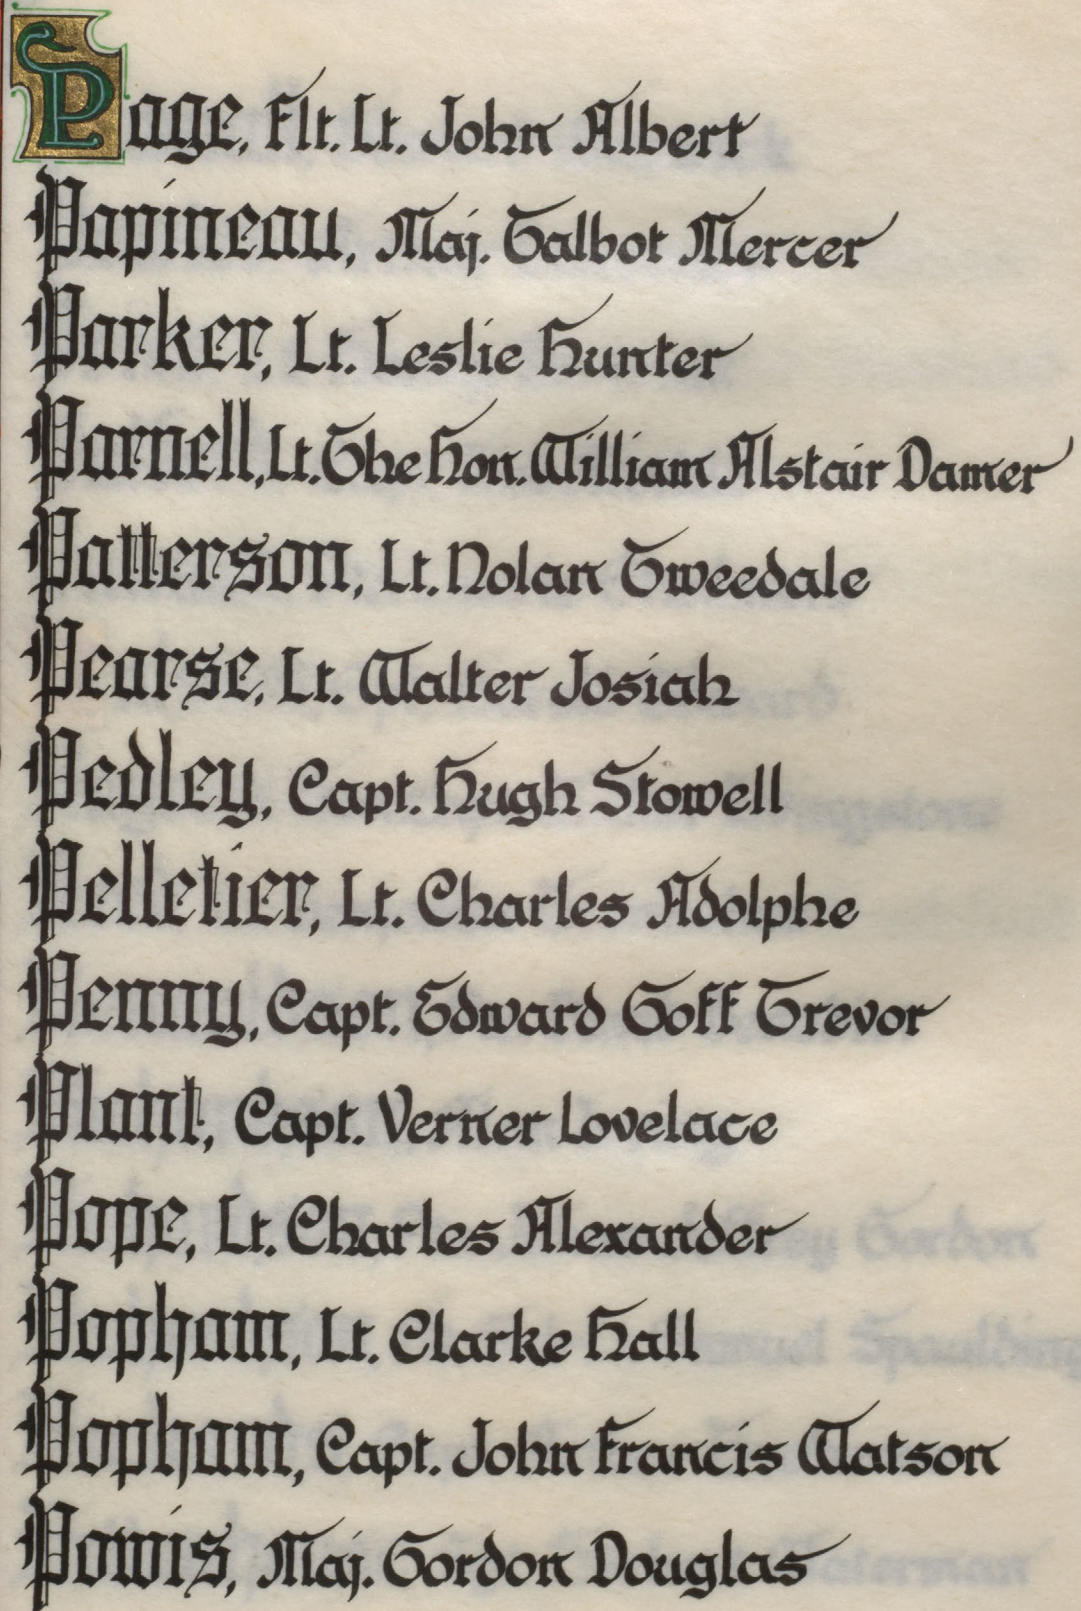 Page, Flt. Lt. John Albert
Papineau, Maj. Talbot Mercer
Parker, Lt. Leslie Hunter
Parnell, Lt. The Hon. William Alstair Damer
Patterson, Lt. Nolan Tweedale
Pearse, Lt. Walter Josiah
Pedley, Capt. Hugh Stowell
Pelletier, Lt. Charles Adolphe
Penny, Capt. Edward Goff Trevor
Plant, Capt. Verner Lovelace
Pope, Lt. Charles Alexander
Popham, Lt. Clarke Hall
Popham, Capt. John Francis Watson
Powis, Maj. Gordon Douglas